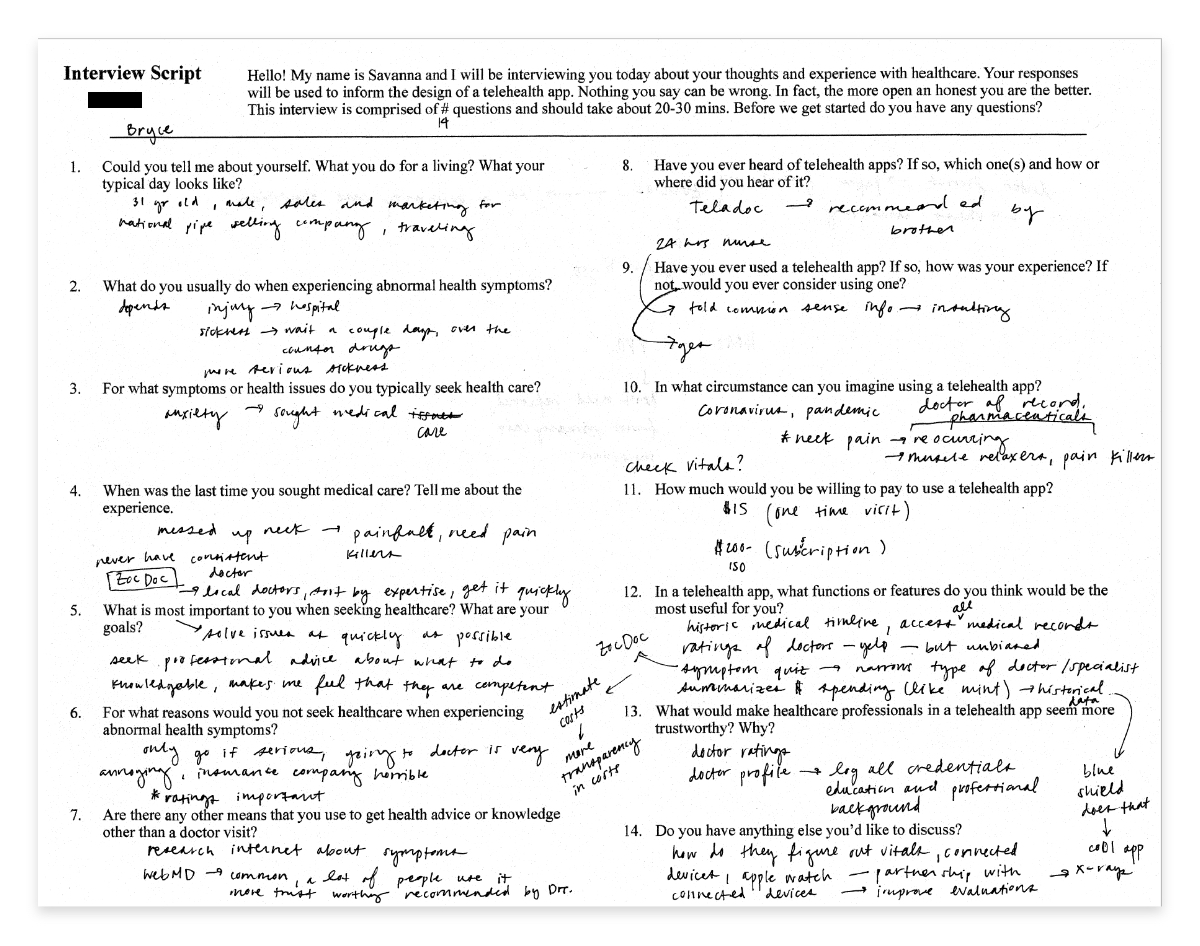 Interview Script
Hello! My name is Savanna and I will be interviewing you today about your thoughts and experience with healthcare. Your responses
will be used to inform the design of a telehealth app. Nothing you say can be wrong. In fact, the more open an honest you are the better.
This interview is comprised of # questions and should take about 20-30 mins. Before we get started do you have any questions?
14
Bryce
1. Could you tell me about yourself. What you do for a living? What your
typical day looks like?
31 yr old, male, sales and marketing for
national pipe selling company, traveling
2. What do you usually do when experiencing abnormal health symptoms?
depends injury → hospital
sickness → wait a couple days, over the
counter drugs
more serious sickness
3. For what symptoms or health issues do you typically seek health care?
anxiety → sought medical issues
care
4. When was the last time you sought medical care? Tell me about the
experience.
messed up neck → painfull, need pain
killers
never have consistent
doctor
ZocDoc
→ local doctors, sort by expertise, get it quickly
5. What is most important to you when seeking healthcare? What are your
goals?
→ solve issues as quickly as possible
seek professional advice about what to do
knowledgable, makes me feel that they are competent
6. For what reasons would you not seek healthcare when experiencing
abnormal health symptoms?
only go if serious, going to doctor is very
annoying, insurance company horrible
* ratings important
7. Are there any other means that you use to get health advice or knowledge
other than a doctor visit?
research internet about symptoms
WebMD → common, a lot of people use it
more trust worthy recommended by Drr.
8. Have you ever heard of telehealth apps? If so, which one(s) and how or
where did you hear of it?
Teladoc → recommeard ed by
brother
24 hrs nurse
9. Have you ever used a telehealth app? If so, how was your experience? If
not, would you ever consider using one?
→ told common sense info → insulting
→ yes
10. In what circumstance can you imagine using a telehealth app?
coronavirus, pandemic
doctor of record,
pharmaceuticals
* neck pain → reocurring
→ muscle relaxers, pain killers
check vitals?
11. How much would you be willing to pay to use a telehealth app?
$15 (one time visit)
$200- (subscription)
150
12. In a telehealth app, what functions or features do you think would be the
most useful for you?
historic medical timeline, access all medical records
ratings of doctors – yelp – but unbiased
ZocDoc
symptom quiz → narrows type of doctor/specialist
summarizes $ spending (like mint) → historical
data
estimate
costs
↓
more
transparency
in costs
13. What would make healthcare professionals in a telehealth app seem more
trustworthy? Why?
doctor ratings
doctor profile → log all credentials
education and professional
background
blue
shield
does that
↓
14. Do you have anything else you'd like to discuss?
how do they figure out vitals, connected
devices, apple watch – partnership with
connected devices → improve evaluations
app
→ x-rays